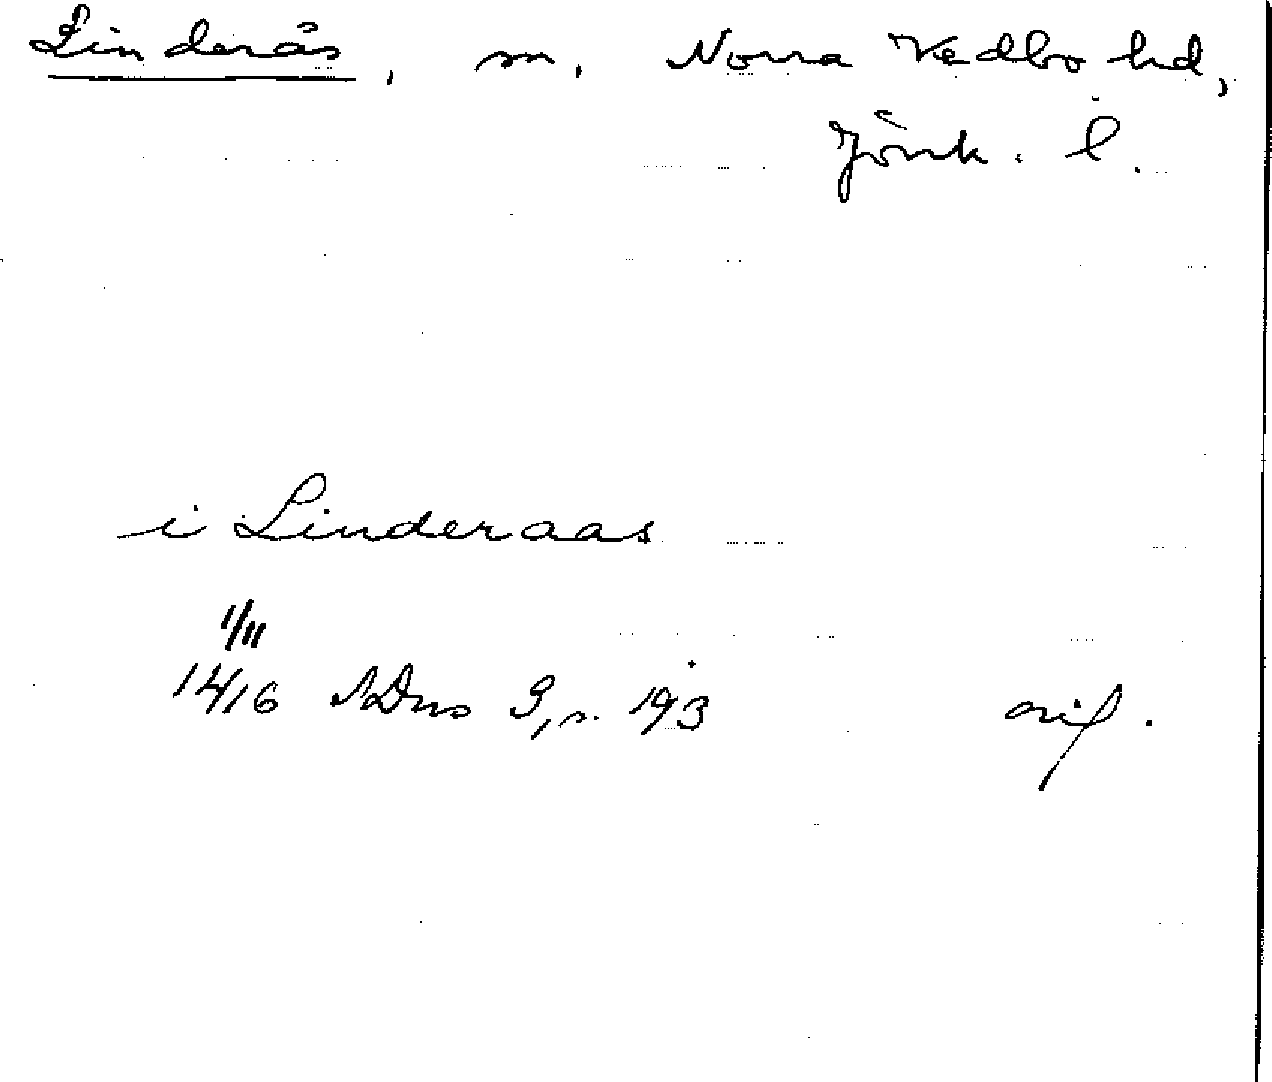 Linderås, sn. Norra Vedbo hd,
Jönk. l.
i Linderaas
1/11
1416 NDns 9, s. 193 orif.